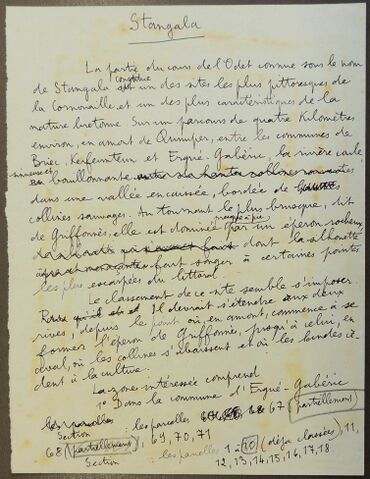 Stangala
La partie du cours de l'Odet connue sous le nom
constitue
de Stangala un des sites les plus pittoresques de
la Cornouaille et un des plus caractéristiques de la
nature bretonne. Sur un parcours de quatre kilomètres
environ, en amont de Quimper, entre les communes de
Briec, Kerfeunteun et Ergué-Gabéric, la rivière coule,
sinueuse et
bouillonnante
dans une vallée encaissée, bordée de
collines sauvages. Au tournant le plus brusque, dit
de Griffonnés, elle est dominée par un éperon rocheux,
dont la silhouette
fait songer à certaines pointes
les plus escarpées du littoral.
Le classement de ce site semble s'imposer.
Il devrait s'étendre aux deux
rives, depuis le point où, en amont, commence à se
former l'éperon de Griffonnés, jusqu'à celui, en
aval, où les collines s'abaissent et où les landes cè-
dent à la culture.
La zone intéressée comprend
1° Dans la commune d'Ergué-Gabéric
les parcelles 67 (partiellement)
Section
68 (partiellement), 69, 70, 71
Section les parcelles 1 à 10 (déjà classées), 11,
12, 13, 14, 15, 16, 17, 18